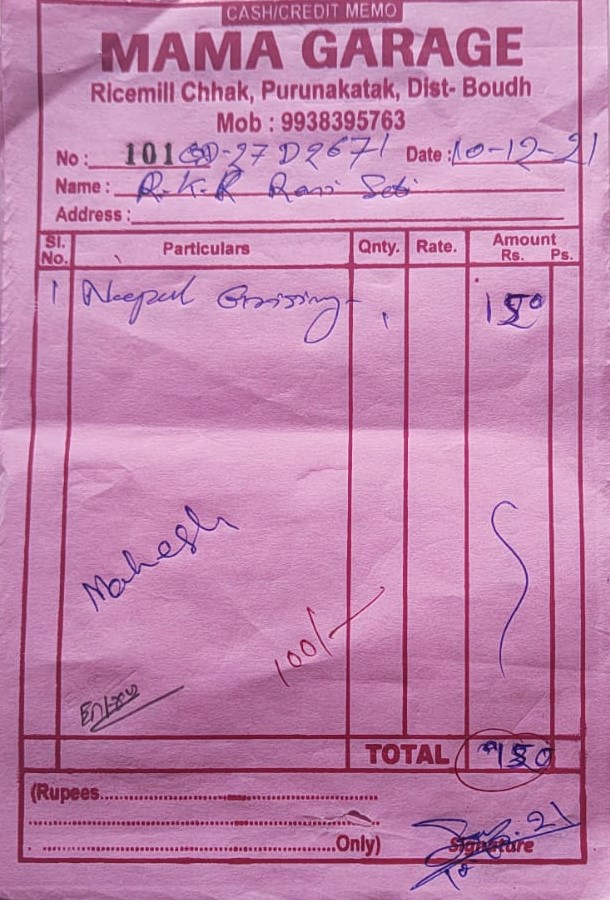 CASH/CREDIT MEMO
MAMA GARAGE
Ricemill Chhak, Purunakatak, Dist- Boudh
Mob : 9938395763
No : 101 OD-27D2671 Date : 10-12-21
Name : R.K.R
Address :
Sl. No. Particulars Qnty. Rate. Amount Rs. Ps.
1 150
Mahesh
100/-
TOTAL 150
(Rupees
Only)
Signature